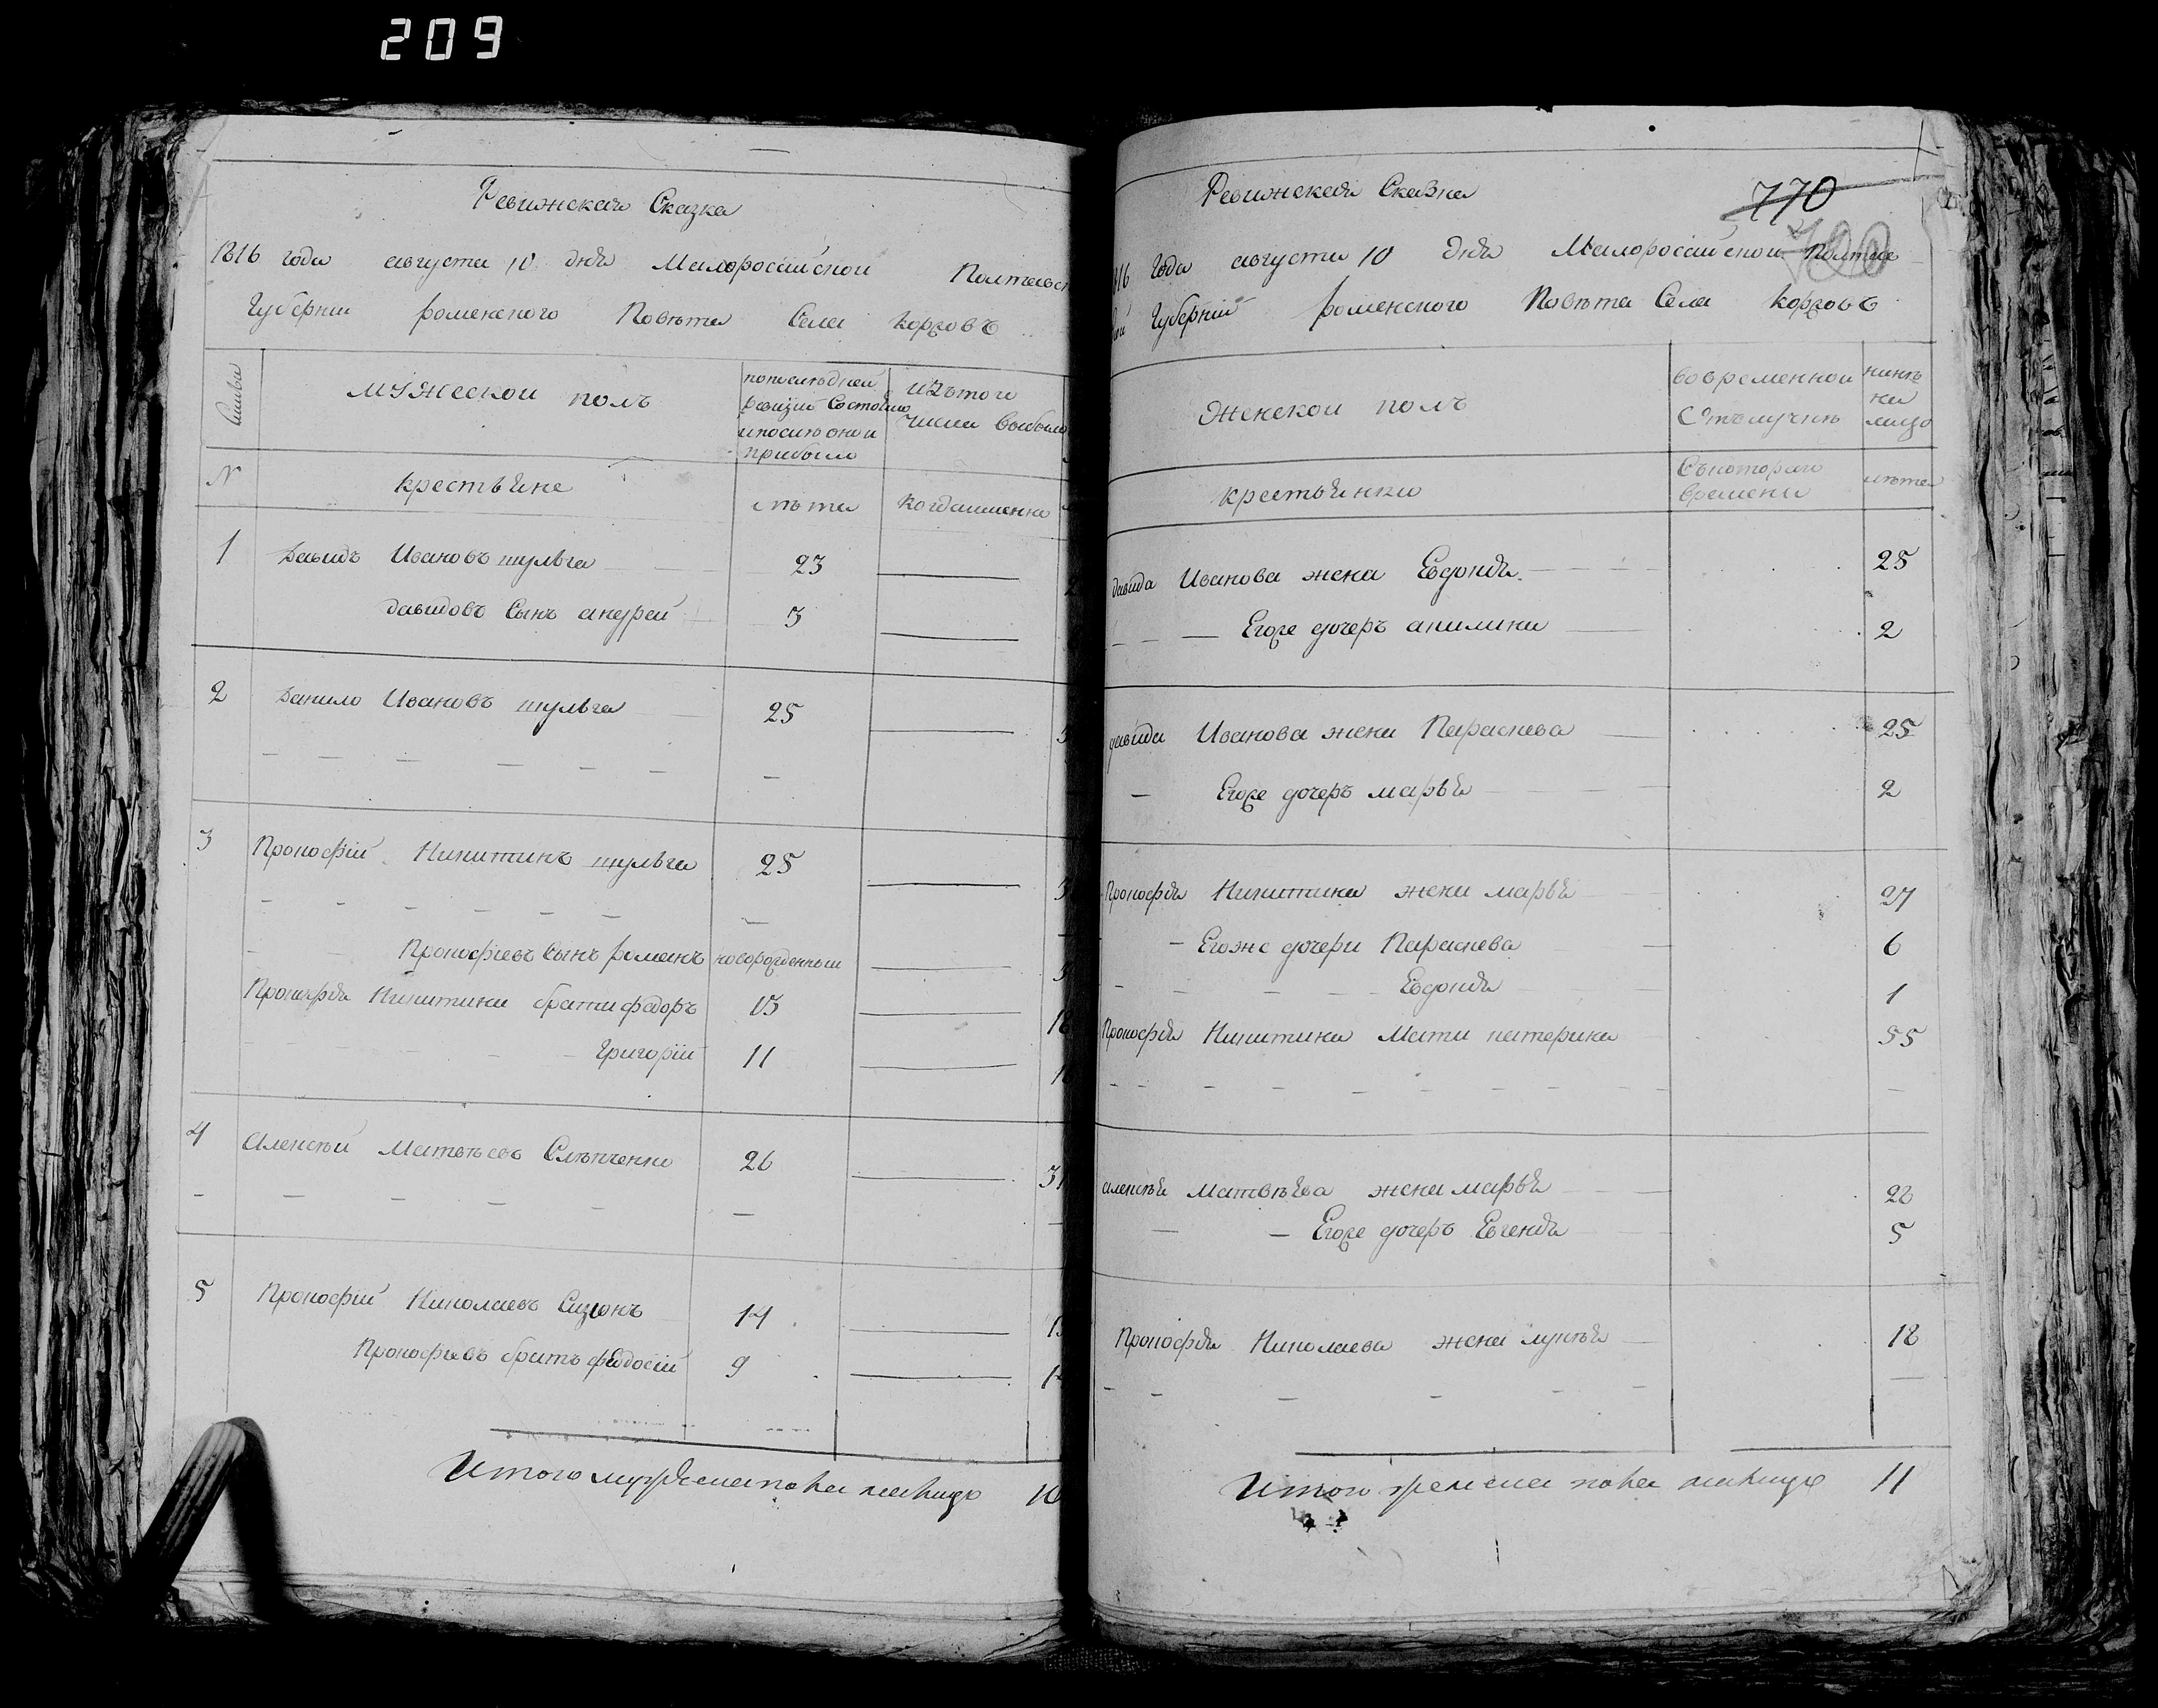 209
Ревижская Сказка
1816 года августа 10 дня Малоросийской Полтавск
Губернии роменского Повета Села коровъ
мужескои полъ
последней ревизии Состояло
и после оной прибыло
изътого числа выбыло
№ крестьяне лета когдаименно
1 Давидъ Ивановъ шульга 23
давидовъ Сынъ андрей 3
2 Данило Ивановъ шульга 25
3 Прокофій Никитинъ шульга 25
Прокофіевъ Сынъ романъ новорожденный
Прокофія Никитина брати федоръ 13
Григорій 11
4 Алексѣй Матвѣевъ Слѣпченко 26
5 Прокофій Николаевъ Сизонъ 14
Прокофьевъ братъ федосій 9
Итого мужеска пола налицо 10
Ревижская Сказка
770
700
1816 года августа 10 дня Малоросийской Полтав
ской Губерній роменского Повѣта Села
Женской полъ
вовременной Отълучкѣ
нинѣ на лицо
крестьянки Скоторого времени лѣта
давида Иванова жена Евдокия 25
Егоже дочеръ акилина 2
давида Иванова жена Параскева 25
Егоже дочеръ марья 2
Прокофия Никитина жена марья 27
Егоже дочери Параскева 6
Евдокия 1
Прокофия Никитина Мати катерина 55
алексѣя Матвѣева жена марья 22
Егоже дочеръ Евгения 5
Прокофия Николаева жена лукѣя 18
Итого женска пола налицо 11